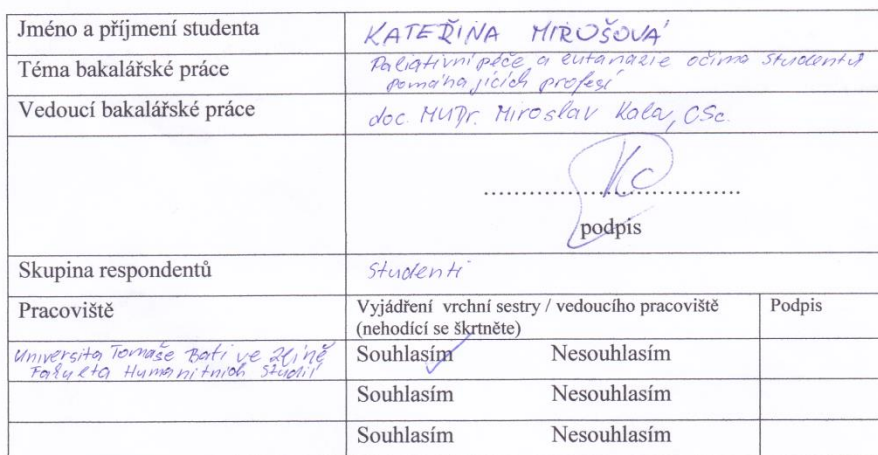 Jméno a příjmení studenta
KATEŘINA MIROŠOVÁ
Téma bakalářské práce
Paliativní péče a eutanazie očima studentů
pomáhajících profesí
Vedoucí bakalářské práce
doc. MUDr. Miroslav Kala, CSc.
podpis
Skupina respondentů
Studenti
Pracoviště
Vyjádření vrchní sestry / vedoucího pracoviště
(nehodící se škrtněte)
Podpis
Universita Tomaše Bati ve Zlíně
Fakulta Humanitních Studií
Souhlasím Nesouhlasím
Souhlasím Nesouhlasím
Souhlasím Nesouhlasím